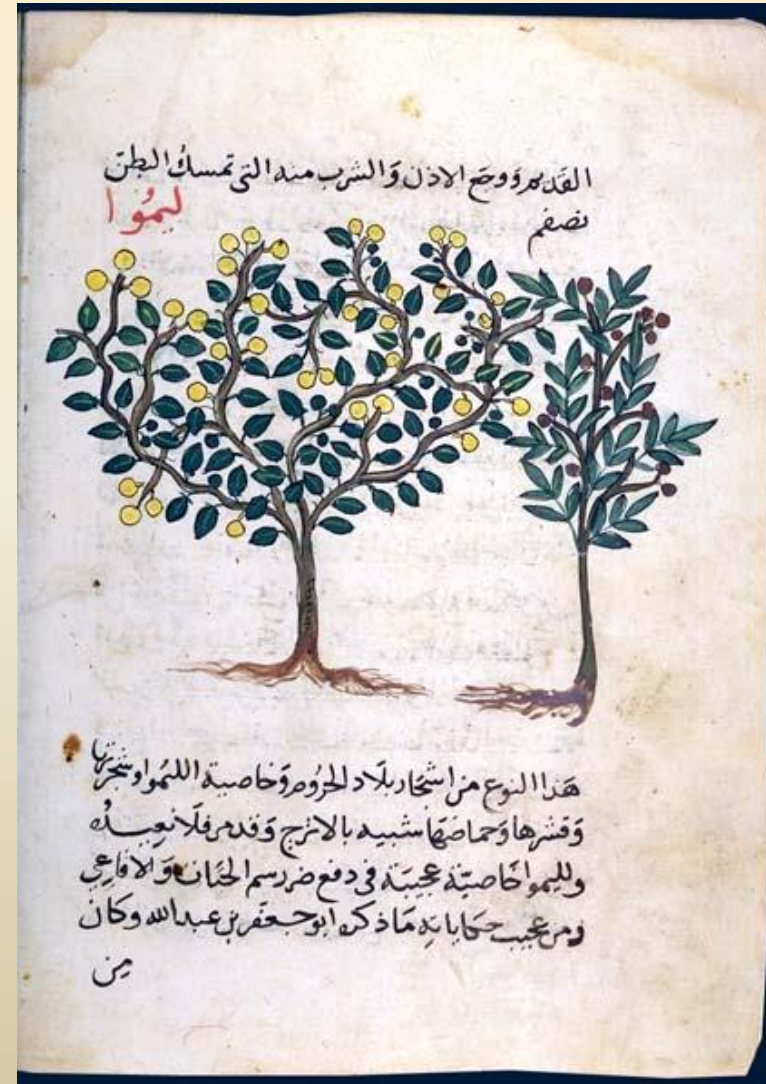 القديم ووجع الاذن وَالشرب منه التى تمسك البطن
نصفم
ليمُوا
هَذا النوع من اشجار بلاد الحروم وَخاصية الليموا وشجرتها
وَقشرها وَحماضها شبيه بالاترج وَقد مر فلا نعيدُه
ولليموا خاصيّة عجيبَة فى دفع ضر رسم الحَيات وَالافاعي
ومن عجيب حكاياته مَا ذكره ابو جعفر بن عبد الله وكان
من